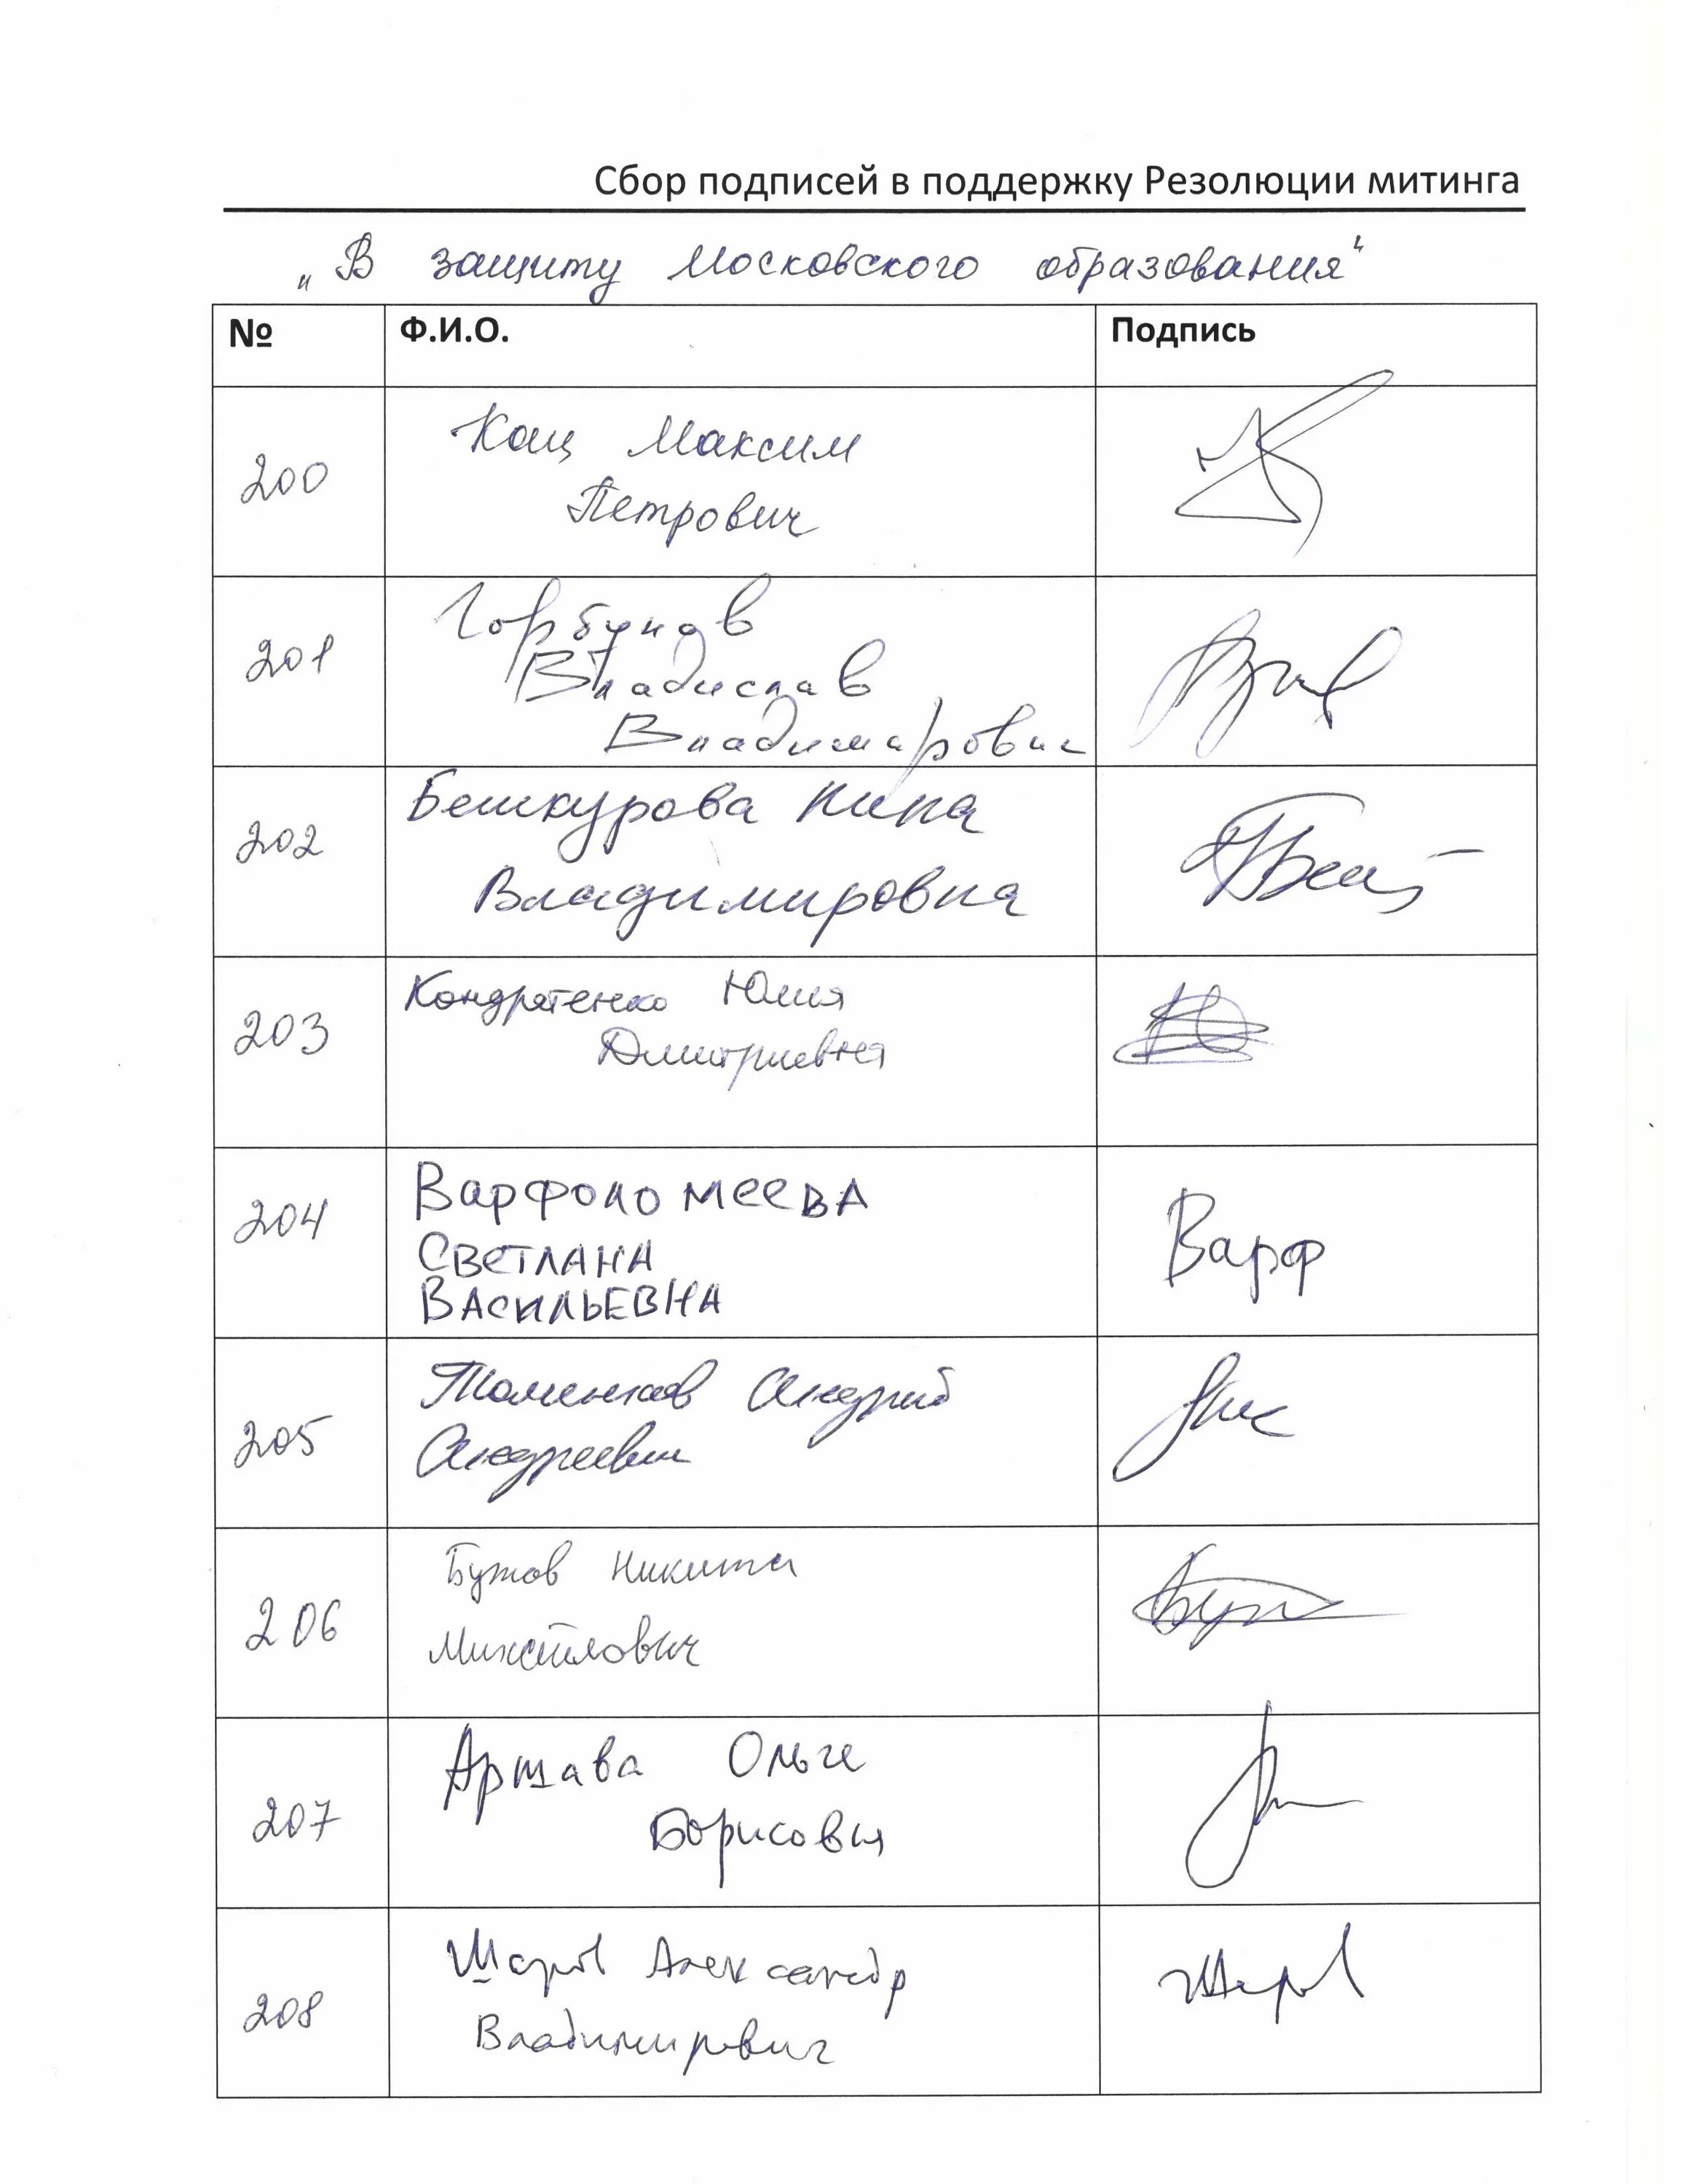 Сбор подписей в поддержку Резолюции митинга
„В защиту Московского образования“
№ Ф.И.О. Подпись
200 Кац Максим
Петрович
201 Горбунов
Владислав
Владимирович
202 Бешкурова Нина
Владимировна
203 Кондратенко Юлия
Дмитриевна
204 Варфоломеева Варф
Светлана
Васильевна
205 Андрей
Андреевич
206 Никита
Михайлович
207 Аршава Ольга
Борисовна
208 Шаров Александр
Владимирович